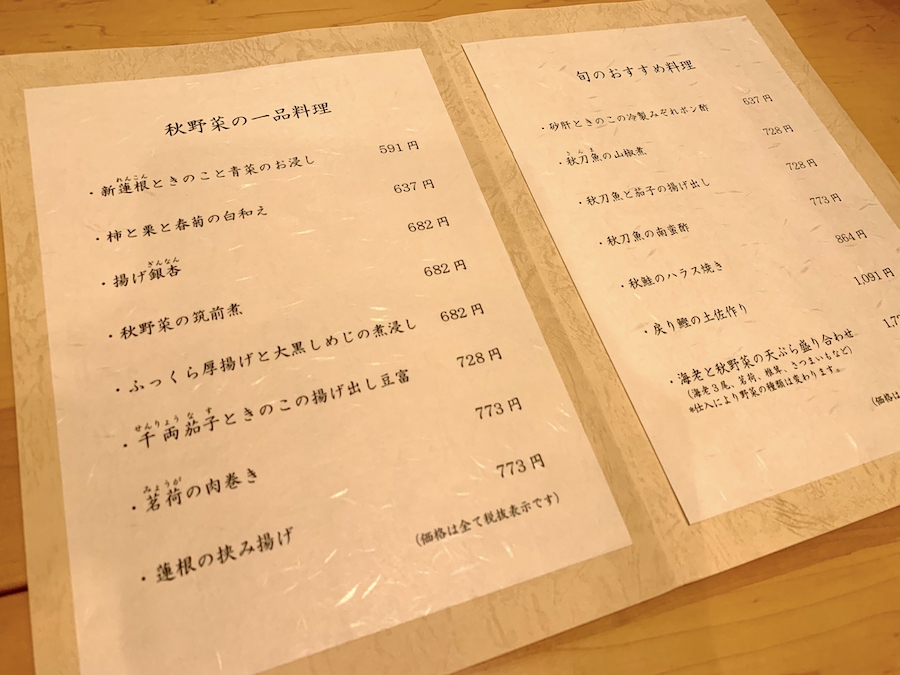 秋野菜の一品料理
れんこん
・新蓮根ときのこと青菜のお浸し 591円
・柿と栗と春菊の白和え 637円
ぎんなん
・揚げ銀杏 682円
・秋野菜の筑前煮 682円
・ふっくら厚揚げと大黒しめじの煮浸し 682円
せんりょうなす
・千両茄子ときのこの揚げ出し豆富 728円
みょうが
・茗荷の肉巻き 773円
・蓮根の挟み揚げ 773円
(価格は全て税抜表示です)
旬のおすすめ料理
・砂肝ときのこの冷製みぞれポン酢 637円
さんま
・秋刀魚の山椒煮 728円
・秋刀魚と茄子の揚げ出し 728円
・秋刀魚の南蛮酢 773円
・秋鮭のハラス焼き 864円
・戻り鰹の土佐作り 1,091円
・海老と秋野菜の天ぷら盛り合わせ
(海老3尾、茗荷、椎茸、さつまいもなど)
*仕入により野菜の種類は変わります
(価格は